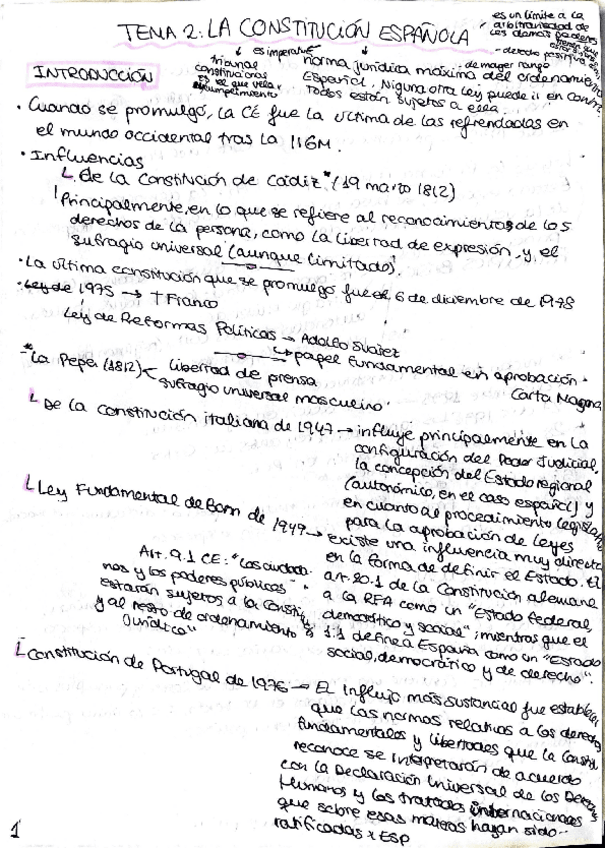 TEMA 2: LA CONSTITUCIÓN ESPAÑOLA
es un límite a la
arbitrariedad de
los demás poderes
- derecho positivo
↓ es imperativa
tribunal
constitucional
es el que vela
cumplimiento
norma jurídica máxima del ordenamiento
de mayor rango
Español, Niguna otra Ley puede ir en contra.
Todos están sujetos a ella.
INTRODUCCIÓN
· Cuando se promulgó, la CE fue la última de las refrendadas en
el mundo occidental tras la IIGM.
· Influencias
↳ De la Constitución de Cádiz * (19 marzo 1812)
Principalmente, en lo que se refiere al reconocimiento de los
derechos de la persona, como la libertad de expresión, y el
sufragio universal (aunque limitado).
· La última constitución que se promulgó fue el 6 de diciembre de 1978
· Ley de 1975 → † Franco
Ley de Reformas Políticas → Adolfo Suárez
↳ papel fundamental en aprobación.
Carta Magna
* La Pepa (1812) < libertad de prensa
sufragio universal masculino.
↳ De la constitución italiana de 1947 → influye principalmente en la
configuración del Poder Judicial,
la concepción del Estado regional
(autonómico, en el caso español) y
en cuanto al procedimiento legislativo
para la aprobación de leyes
↳ Ley Fundamental de Bonn de 1949 → existe una influencia muy directa
en la forma de definir el Estado. El
art. 20.1 de la Constitución alemana
a la RFA como un "Estado federal,
democrático y social"; mientras que el
1.1 define a España como un "Estado
social, democrático y de derecho".
Art. 9.1 CE: "Los ciudada-
nos y los poderes públicos
estarán sujetos a la Consti.
y al resto de ordenamiento
jurídico"
↳ Constitución de Portugal de 1976 → El influjo más sustancial fue establecer
que las normas relativas a los derechos
fundamentales y libertades que la Consti.
reconoce se interpretarán de acuerdo
con la Declaración Universal de los Derechos
Humanos y los tratados internacionales
que sobre esas materias hayan sido
ratificadas x ESP
1